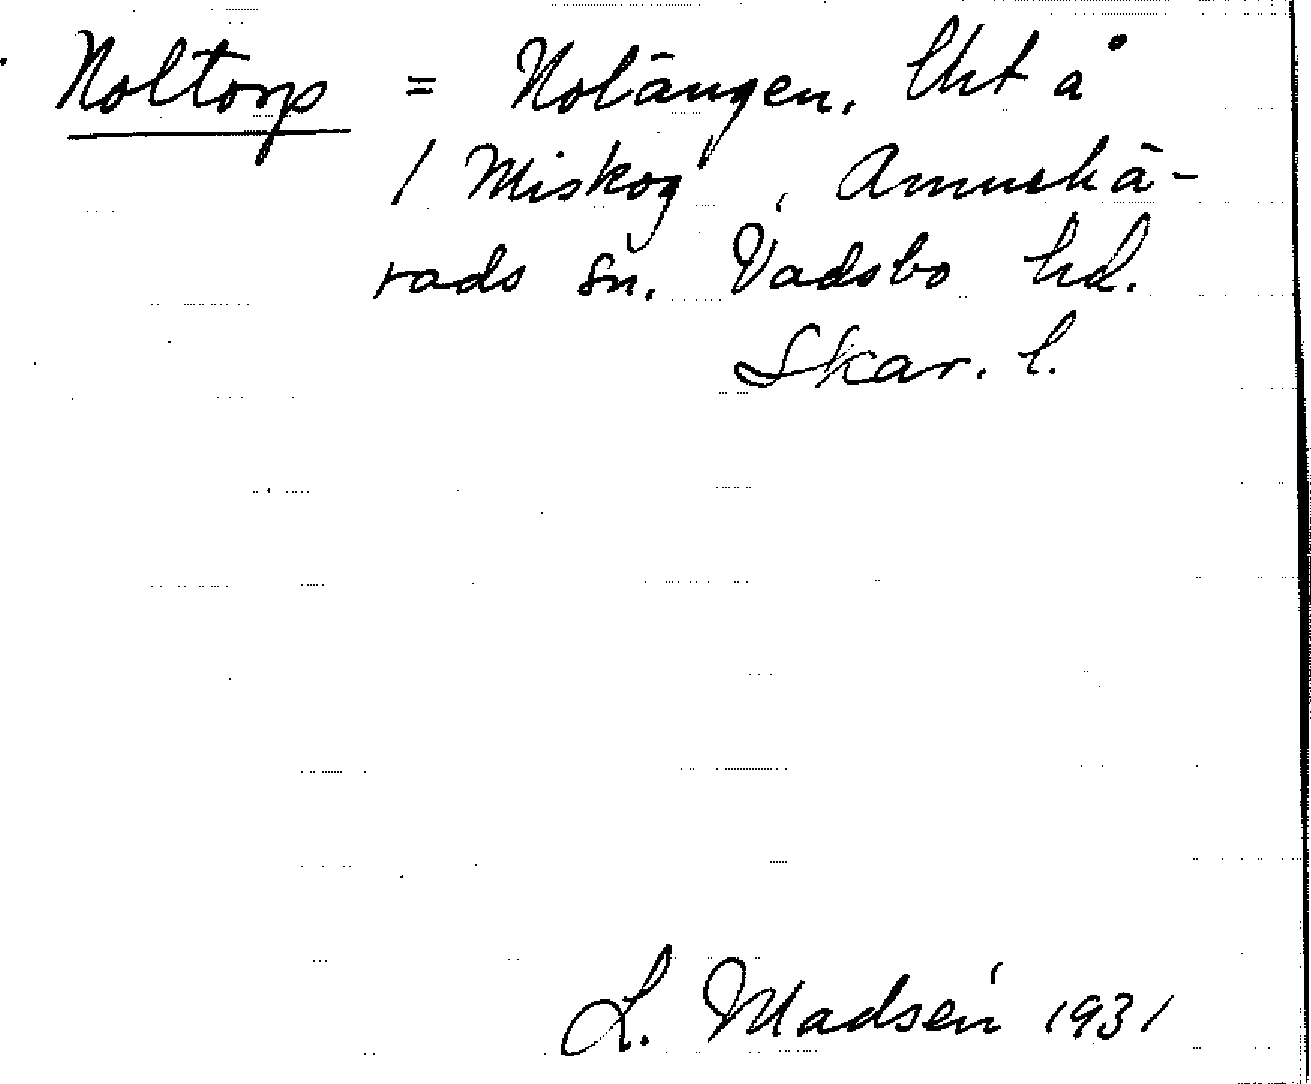 Noltorp = Nolängen. Lht å
1 Miskog i Amnehä-
rads sn. Vadsbo hd.
Skar. l.
L. Madsén 1931